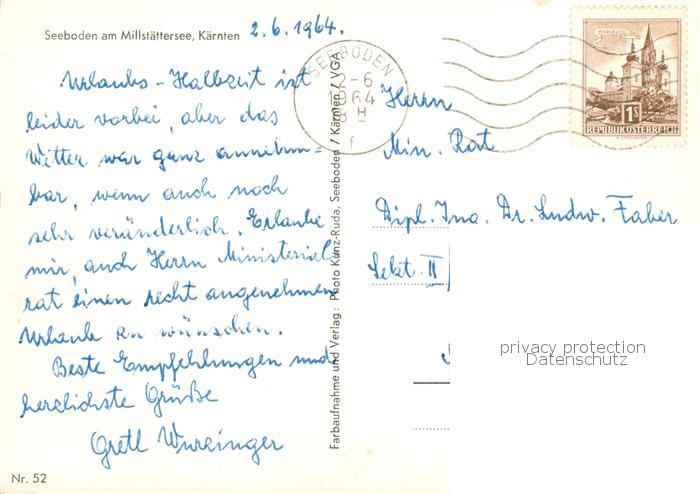 Seeboden am Millstättersee, Kärnten
2.6.1964.
Urlaubs-Halbzeit ist
leider vorbei, aber das
Wetter war ganz annehm=
bar, wenn auch noch
sehr veränderlich. Erlaube
mir, auch Herrn Ministerial
rat einen recht angenehmen
Urlaub zu wünschen.
Beste Empfehlungen und
herzlichste Grüße
Gretl Wurzinger
Nr. 52
Farbaufnahme und Verlag: Photo Kunz-Ruda, Seeboden / Kärnten / VGA
SEEBODEN
2-6
1964
8 H
f
1S
REPUBLIK ÖSTERREICH
Herrn
Min. Rat
Dipl. Ing. Dr. Ludw. Faber
Sekt. II
privacy protection
Datenschutz